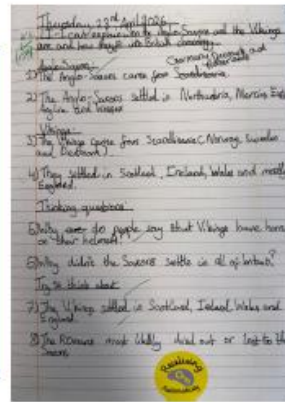 Thursday 23rd April 2026
I can explain who the Anglo-Saxons and the Vikings
are and how they fit into British chronology.
Anglo-Saxons
Germany, Denmark and
Netherlands
1) The Anglo-Saxons came from Scandinavia.
2) The Anglo-Saxons settled in Northumbria, Mercia, East
Anglia and Wessex
Vikings
3) The Vikings came from Scandinavia (Norway, Sweden
and Denmark).
4) They settled in Scotland, Ireland, Wales and mostly
England.
Thinking questions
5) Why do people say that Vikings have horns
on their helmet?
6) Why didn't the Saxons settle in all of britain?
Try to think about
7) The Vikings settled in Scotland, Ireland, Wales and
England.
8) The Romans most likely died out or lost to the
Saxons.